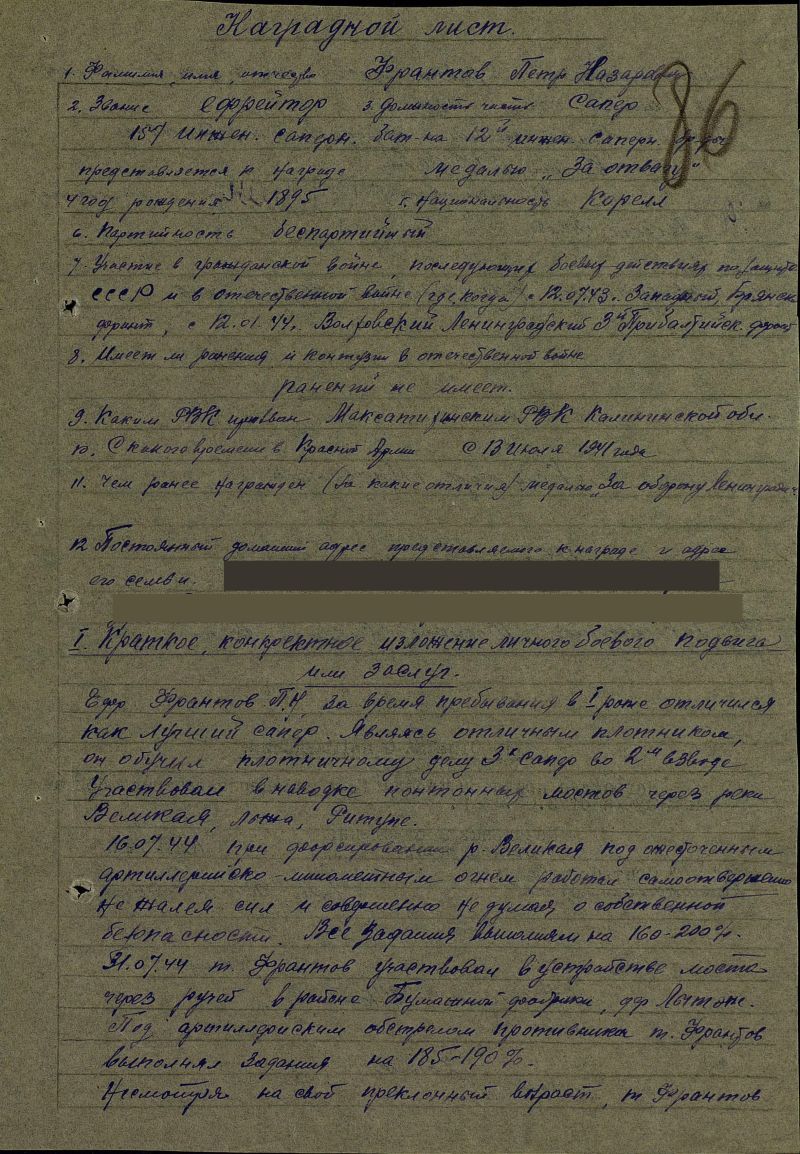 Наградной лист.
86
1. Фамилия, имя, отчество Франтов Петр Назарович
2. Звание ефрейтор 3. должность часть Сапер
инжен. саперн. бат-на 12й инжен. саперн. бр-ды
представляется к награде медалью „За отвагу"
4 год рождения 1895 5. Национальность Карелл
6. Партийность беспартийный
7. Участие в гражданской войне, последующих боевых действиях по защите
СССР и в отечественной войне (где, когда) с 12.07.43. Западный, Брянск
фронт, с 12.01.44. Волховский Ленинградский 3й Прибалтийск. фронт
8. Имеет ли ранения и контузии в отечественной войне
ранений не имеет.
9. Каким РВК призван Максатихинским РВК Калининской обл.
10. С какого времени в Красной Армии с 13 июля 1941 года
11. Чем ранее награжден (за какие отличия) медалью „За оборону Ленинграда"
12 Постоянный домашний адрес представляемого к награде и адрес
его семьи.
I. Краткое, конкретное изложение личного боевого подвига
или заслуг.
Ефр Франтов П.Н. за время пребывания в I роте отличился
как лучший сапер. Являясь отличным плотником,
он обучил плотничному делу 3х сапер во 2м взводе
Участвовал в наводке понтонных мостов через реки
Великая, Лжа, Ритупе.
16.07.44 при форсировании р. Великая под ожесточенным
артиллерийско-минометным огнем работал самоотверженно
не жалея сил и совершенно не думая о собственной
безопасности. Все задания выполнял на 160-200%.
31.07.44 т. Франтов участвовал в устройстве моста
через ручей в районе Бумажной фабрики, дер
Под артиллерийским обстрелом противника т. Франтов
выполнял задания на 185-190%.
Несмотря на свой преклонный возраст, т Франтов